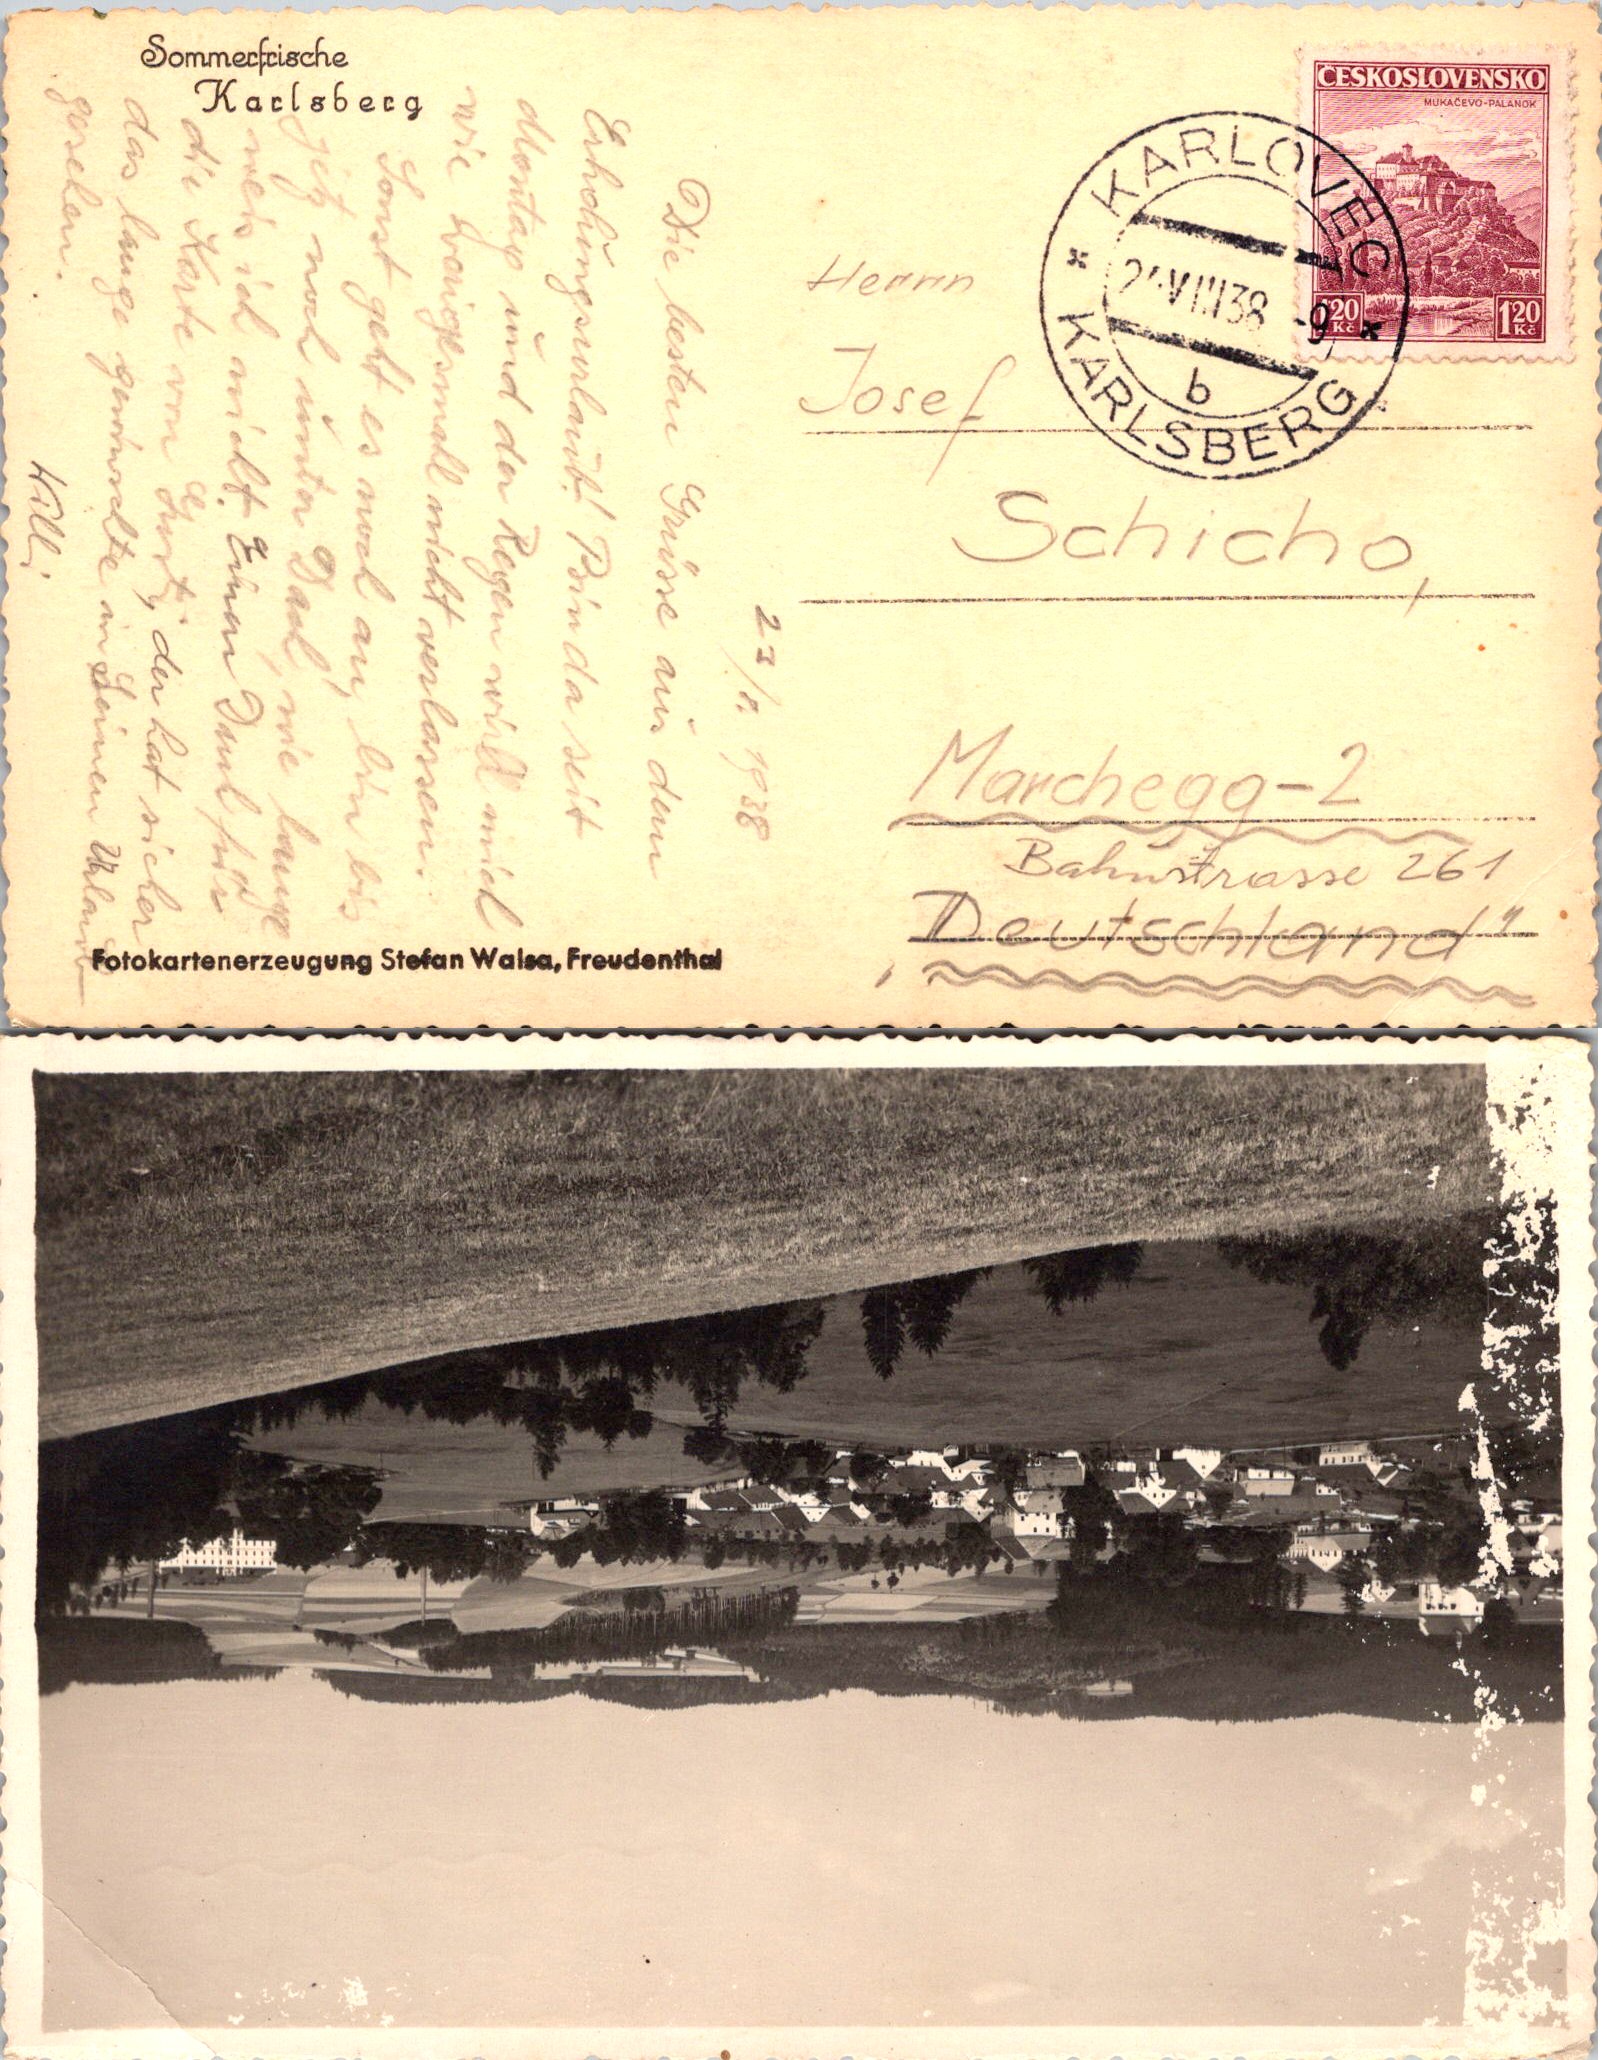 Sommerfrische
Karlsberg
ČESKOSLOVENSKO
MUKAČEVO-PALANOK
1·20 Kč
1·20 Kč
KARLOVEC
VIII 38 -9
b
KARLSBERG
Herrn
Josef
Schicho,
Marchegg-2
Bahnstrasse 261
"Deutschland"
23/8. 1938
Die besten Grüsse aus dem
Erholungsurlaub! Bin da seit
Montag und der Regen will mich
wie
nicht verlassen.
Sonst geht es noch an, bin bis
jetz noch unter Dach, wie lange
weis ich nicht. Euren Dank für
die Karte von Gust, der hat sicher
das lange gewünschte in seinen Urlaub
gesehen.
Willi
Fotokartenerzeugung Stefan Walsa, Freudenthal